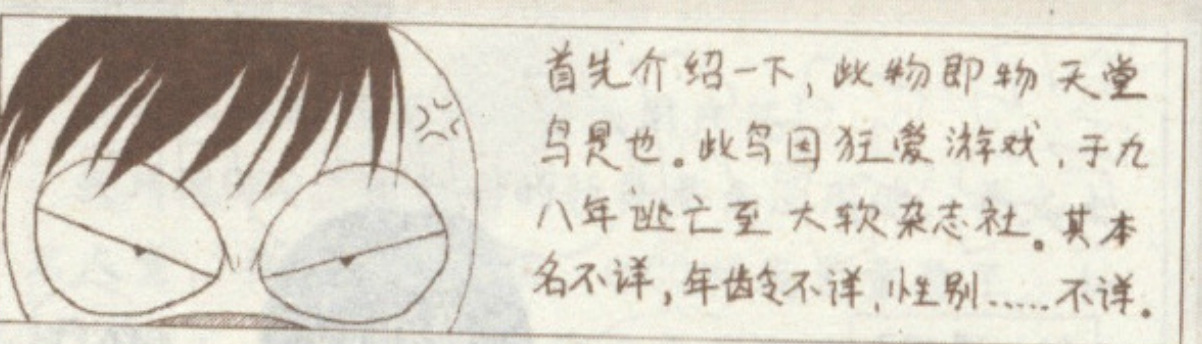 首先介绍一下，此物即物天堂
鸟是也。此鸟因狂爱游戏，于九
八年逃亡至大软杂志社。其本
名不详，年龄不详，性别……不详。